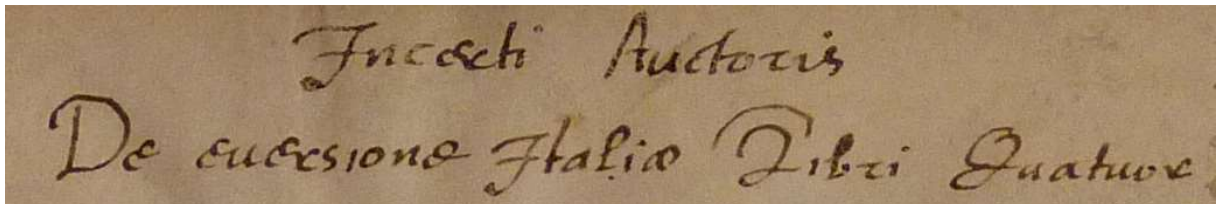 Incerti Auctoris
De euersione Italiæ Libri Quatuor